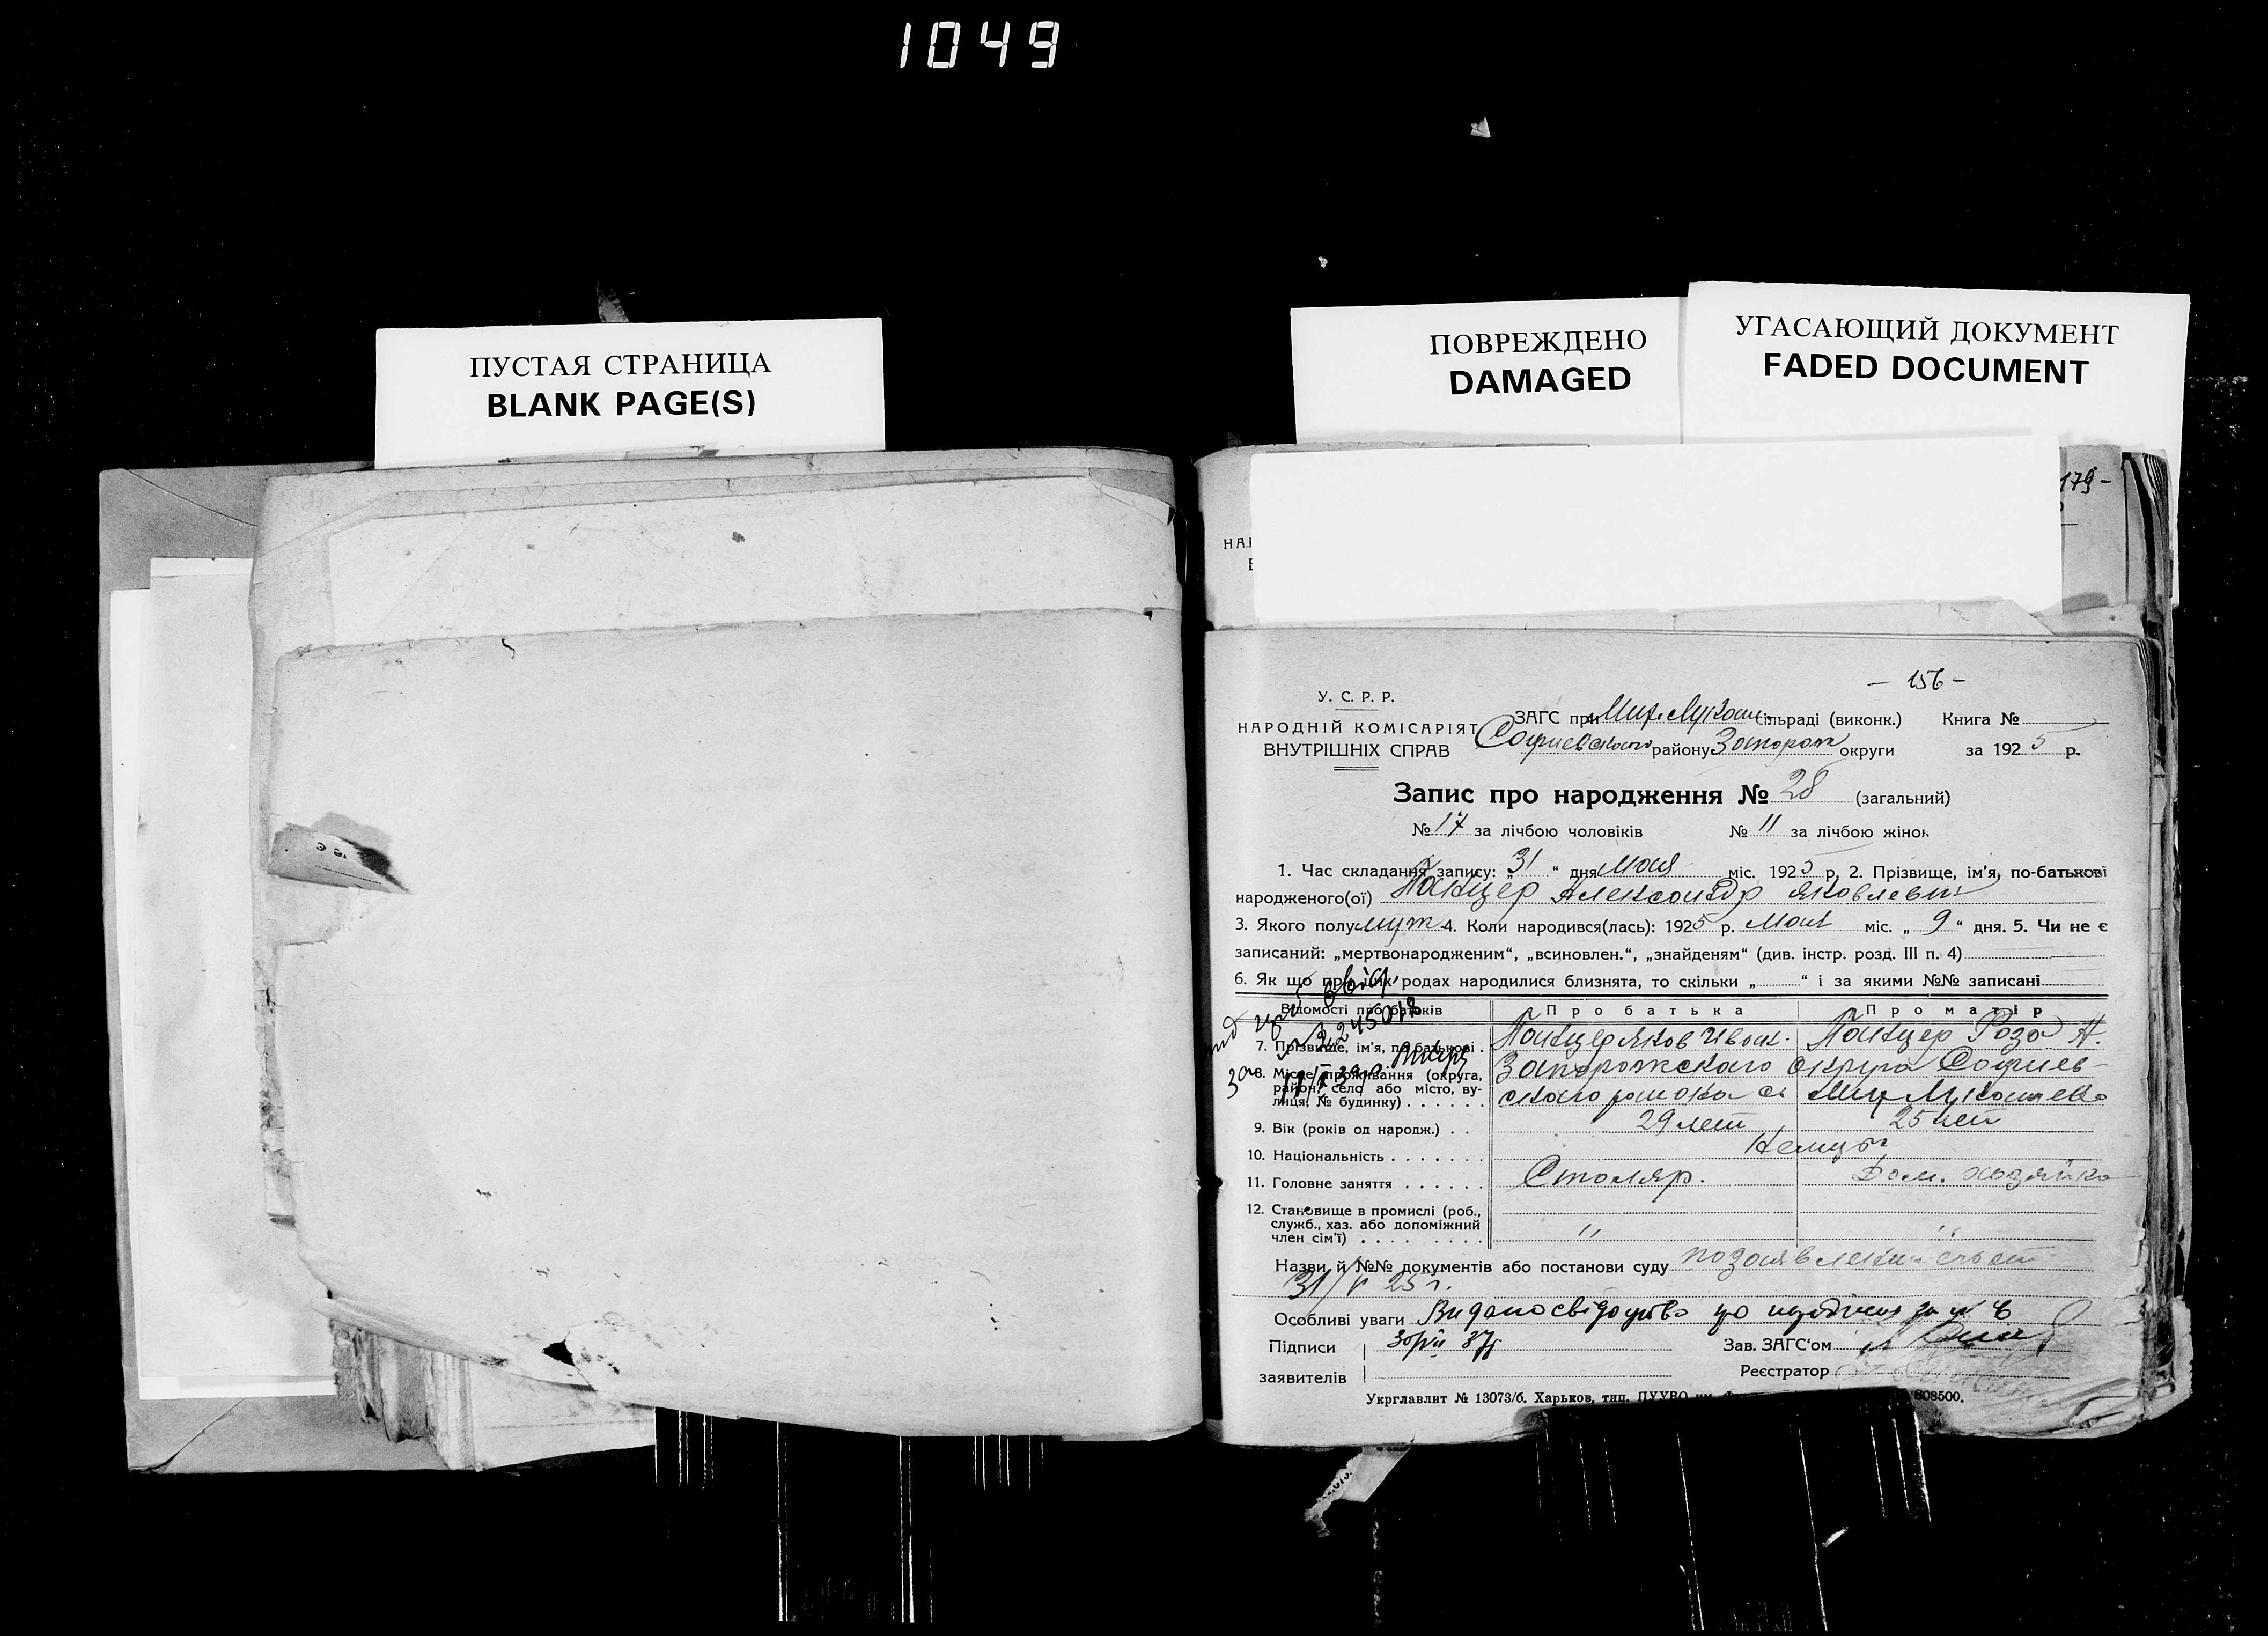 1049
ПУСТАЯ СТРАНИЦА
BLANK PAGE(S)
ПОВРЕЖДЕНО
DAMAGED
УГАСАЮЩИЙ ДОКУМЕНТ
FADED DOCUMENT
179-
НА
- 156 -
У. С. Р. Р.
НАРОДНІЙ КОМІСАРІЯТ
ВНУТРІШНІХ СПРАВ
ЗАГС при сільраді (виконк.) Книга №
Софиевского району Запорож округи за 1925 р.
Запис про народження № 28 (загальний)
№ 17 за лічбою чоловіків № 11 за лічбою жінок
1. Час складання запису: „31“ дня Мая міс. 1925 р. 2. Прізвище, ім'я, по-батькові
народженого(ої) Панцер Александр Яковлевич
3. Якого полу муж 4. Коли народився(лась): 1925 р. Мая міс. „9“ дня. 5. Чи не є
записаний: „мертвонародженим“, „всиновлен.“, „знайденям“ (див. інстр. розд. III п. 4)
6. Як що при цих родах народилися близнята, то скільки „ “ і за якими №№ записані
Відомості про батьків Про батька Про матір
7. Прізвище, ім'я, по батькові . Панцер Яков Иван. Панцер Роза А.
8. Місце проживання (округа, Запорожского округа Софиев-
район, село або місто, ву- ского района с.
лиця, № будинку) . . . . . .
9. Вік (років од народж.) . . 29 лет 25 лет
10. Національність . . . . . . . Немцы
11. Головне заняття . . . . . . Столяр. Дом. хозяйка
12. Становище в промислі (роб.,
служб., хаз. або допоміжний
член сім'ї) . . . . . . . . " "
Назви й №№ документів або постанови суду
31/V 25 г.
Особливі уваги Видано свідоцтво
Підписи Зав. ЗАГС'ом
заявителів Реєстратор
Укрглавлит № 13073/б. Харьков, тип. ПУУВО 808500.